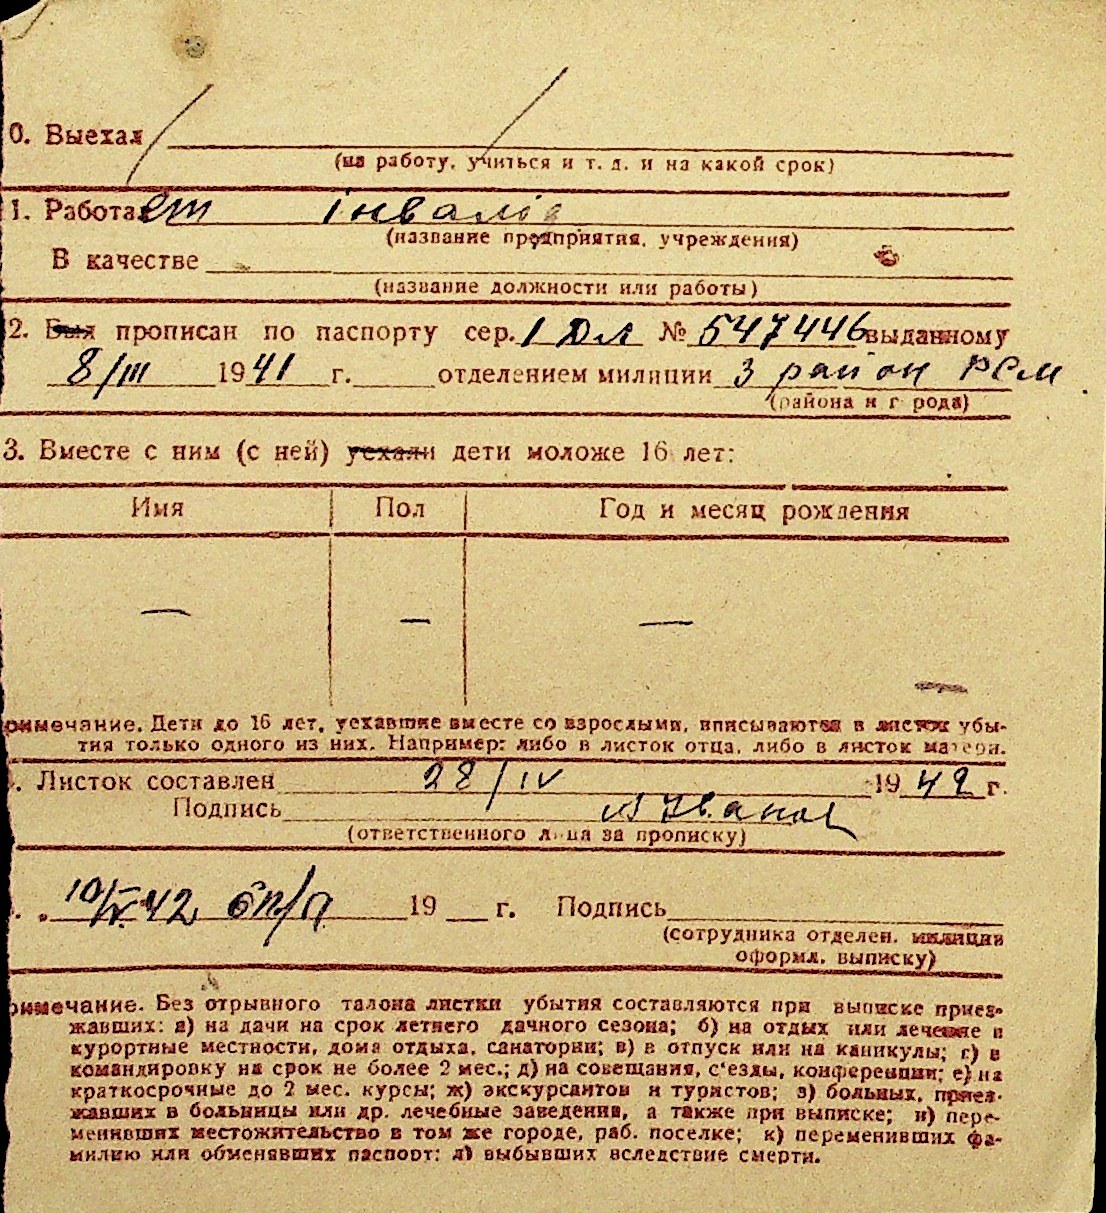 0. Выехал
(на работу, учиться и т. д. и на какой срок)
1. Работает інвалід
(название предприятия, учреждения)
В качестве
(название должности или работы)
2. Был прописан по паспорту сер. 1 ДЛ № 547446 выданному
8/III 1941 г. отделением милиции 3 район РСМ
(района и г рода)
3. Вместе с ним (с ней) уехали дети моложе 16 лет:
Имя Пол Год и месяц рождения
— — —
римечание. Дети до 16 лет, уехавшие вместе со взрослыми, вписываются в листок убы-
тия только одного из них. Например: либо в листок отца, либо в листок матери.
. Листок составлен 28/IV 1942 г.
Подпись Иванов
(ответственного лица за прописку)
. 10/V 42 6 п/о 19 г. Подпись
(сотрудника отделен. милиции
оформл. выписку)
римечание. Без отрывного талона листки убытия составляются при выписке приез-
жавших: а) на дачи на срок летнего дачного сезона; б) на отдых или лечение в
курортные местности, дома отдыха, санатории; в) в отпуск или на каникулы; г) в
командировку на срок не более 2 мес.; д) на совещания, с'езды, конференции; е) на
краткосрочные до 2 мес. курсы; ж) экскурсантов и туристов; з) больных, приез-
жавших в больницы или др. лечебные заведения, а также при выписке; и) пере-
менивших местожительство в том же городе, раб. поселке; к) переменивших фа-
милию или обменявших паспорт; л) выбывших вследствие смерти.